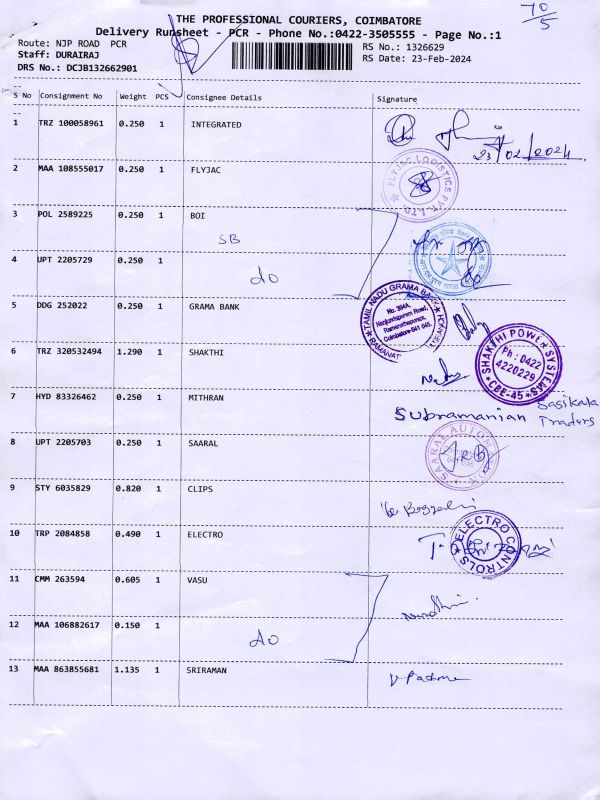 70
5
THE PROFESSIONAL COURIERS, COIMBATORE
Delivery Runsheet - PCR - Phone No.:0422-3505555 - Page No.:1
Route: NJP ROAD PCR
RS No.: 1326629
Staff: DURAIRAJ
RS Date: 23-Feb-2024
DRS No.: DCJB132662901
S No Consignment No Weight PCS Consignee Details Signature
1 TRZ 100058961 0.250 1 INTEGRATED
23/02/2024
2 MAA 108555017 0.250 1 FLYJAC
FLYJAC LOGISTICS PVT. LTD.
3 POL 2589225 0.250 1 BOI
SB
4 UPT 2205729 0.250 1
do
5 DDG 252022 0.250 1 GRAMA BANK
TAMIL NADU GRAMA BANK
No. 394A,
Nanjundapuram Road,
Ramanathapuram,
Coimbatore-641 045.
6 TRZ 320532494 1.290 1 SHAKTHI
SHAKTHI POWER SYSTEMS
Ph : 0422
4220229
CBE-45
7 HYD 83326462 0.250 1 MITHRAN
Subramanian Sasikala
Traders
8 UPT 2205703 0.250 1 SAARAL
SAARAL
9 STY 6035829 0.820 1 CLIPS
10 TRP 2084858 0.490 1 ELECTRO
ELECTRO CONTROLS
11 CMM 263594 0.605 1 VASU
12 MAA 106882617 0.150 1
do
13 MAA 863855681 1.135 1 SRIRAMAN
V Padma